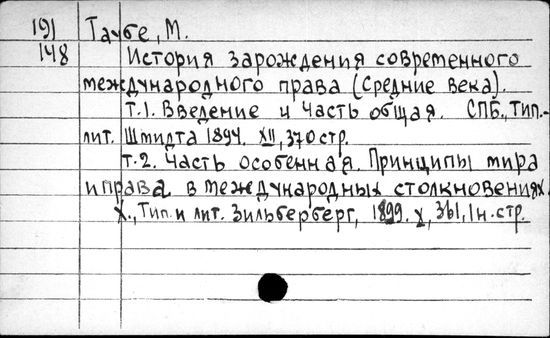 191 Таубе, М.
148 История зарождения современного
международного права (Средние века).
Т.1. Введение и Часть общая. СПБ., Тип.-
лит. Шмидта 1894. XII, 370 стр.
Т.2. Часть особенная. Принципы мира
и права в международных столкновениях.
Х., Тип. и лит. Зильберберг, 1899. X, 361, 1 н. стр.